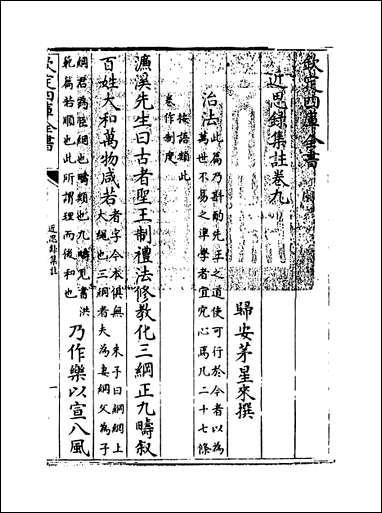 欽定四庫全書
近思錄集註卷九
歸安茅星來撰
治法 此篇乃斟酌先王之道使可行於今者以為
萬世不易之準學者宜究心焉凡二十七條
按語類此
卷作制度
濂溪先生曰古者聖王制禮法修教化三綱正九疇敘
百姓大和萬物咸若 者字今本俱無 朱子曰綱綱上
大繩也三綱者夫為妻綱父為子
綱君為臣綱也疇類也九疇見書洪
範篇若順也此所謂理而後和也 乃作樂以宣八風
欽定四庫全書
近思錄集註
一